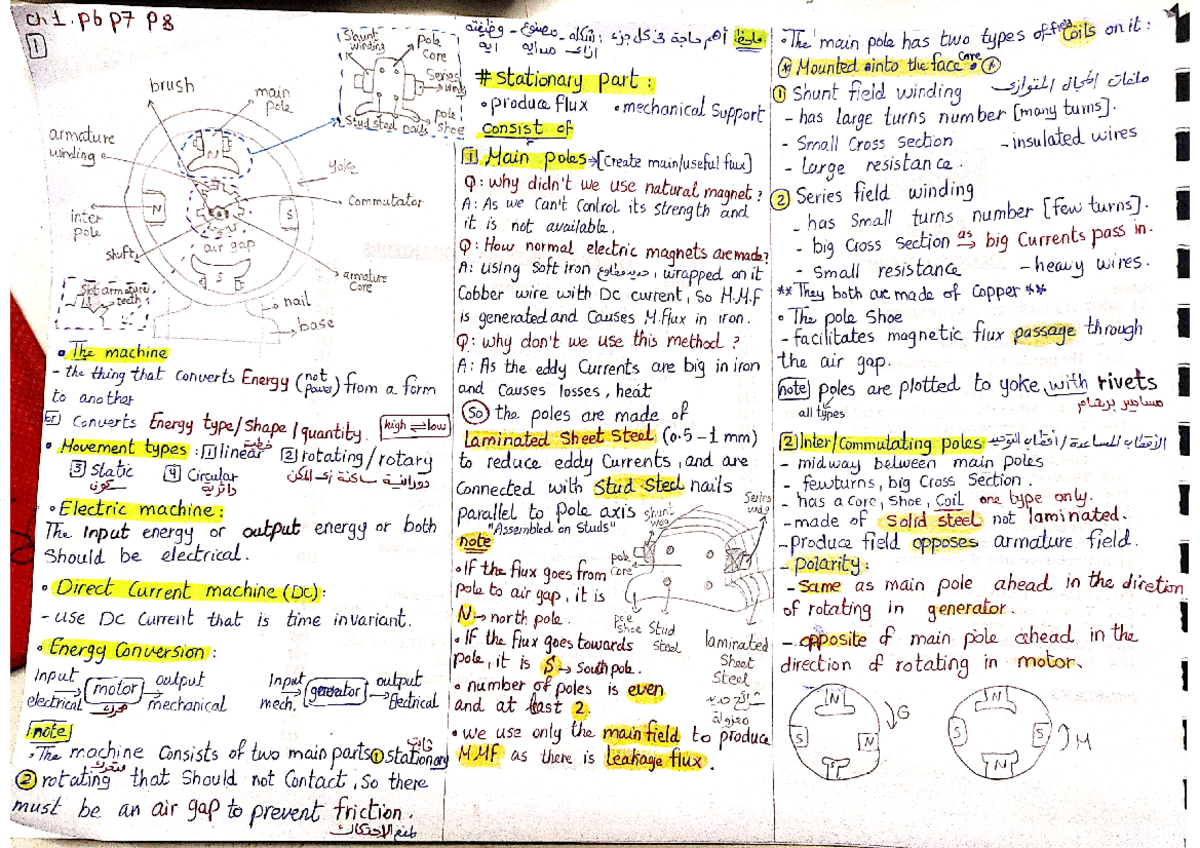 Ch 1. P6 P7 P8
1
brush
main pole
armature winding
yoke
Commutator
inter pole
N
S
N
air gap
S
shuft
armature Core
Slot armature
teeth
nail
base
Shunt winding
pole Core
Series wind
pole Shoe
Stud steel nails
• The machine
- the thing that Converts Energy (not power) from a form
to another
or Converts Energy type/Shape/quantity. high ⇌ low
• Movement types: 1 linear خطية 2 rotating/rotary
3 Static 4 Circular
سكون دائرية
• Electric machine:
The Input energy or output energy or both
Should be electrical.
• Direct Current machine (Dc):
- use Dc Current that is time invariant.
• Energy Conversion:
Input output Input output
electrical → motor → mechanical mech. → generator → Electrical
note
• The machine Consists of two main parts 1 stationary ثابت
2 rotating متحرك that Should not Contact, So there
must be an air gap to prevent friction.
لمنع الاحتكاك
أهم حاجة فى كل جزء: شكله - مصنوع - وظيفته
# Stationary part:
• produce flux • mechanical Support
Consist of
1 Main poles → [Create main/useful flux]
Q: why didn't we use natural magnet?
A: As we Can't Control its Strength and
it is not available.
Q: How normal electric magnets are made?
A: using Soft iron حديد مطاوع, wrapped on it
Cobber wire with Dc current, So M.M.f
is generated and Causes M.flux in iron.
Q: why don't we use this method?
A: As the eddy Currents are big in iron
and Causes losses, heat
So the poles are made of
Laminated Sheet Steel (0.5 - 1 mm)
to reduce eddy Currents, and are
Connected with Stud Steel nails
parallel to Pole axis
"Assembled on Studs"
note
• IF the flux goes from
pole to air gap, it is
N → north pole.
• IF the flux goes towards
pole, it is S → South pole.
• number of poles is even
and at least 2.
• we use only the main field to produce
M.MF as there is leakage flux.
shunt wdg
Series wdg
pole Core
Shoe
Stud Steel
laminated Sheet Steel
شرائح حديد معزولة
• The main pole has two types of field Coils on it:
* Mounted into the face Core *
1 Shunt field winding ملفات المجال المتوازى
- has large turns number [many turns].
- Small Cross Section - insulated wires
- Large resistance.
2 Series field winding
- has Small turns number [few turns].
- big Cross Section as → big Currents pass in.
- Small resistance - heavy wires.
** They both are made of Copper **
• The pole Shoe
- facilitates magnetic flux passage through
the air gap.
note poles are plotted to yoke, with rivets
all types مسامير برشام
2 Inter/Commutating poles
- midway between main poles
- few turns, big Cross Section.
- has a Core, Shoe, Coil one type only.
- made of Solid steel not laminated.
- produce field opposes armature field.
- polarity:
- Same as main pole ahead in the diretion
of rotating in generator.
- opposite of main pole ahead in the
direction of rotating in motor.
N
S
N
G
N
S
S
N
M